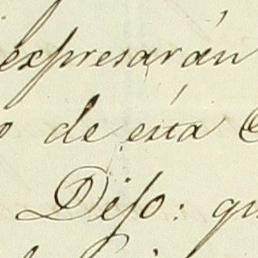 expresarán
de ésta
Dijo: qu